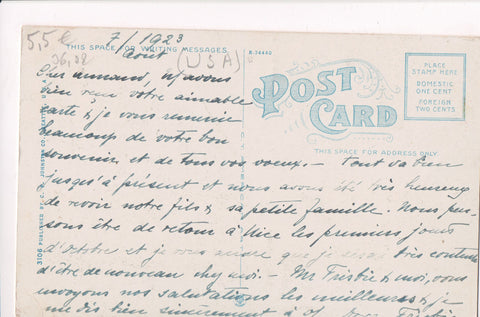 5,5
7/ 1923
Août
36,08
(USA)
THIS SPACE FOR WRITING MESSAGES
E-34440
POST
CARD
PLACE
STAMP HERE
DOMESTIC
ONE CENT
FOREIGN
TWO CENTS
THIS SPACE FOR ADDRESS ONLY.
3106 PUBLISHED BY C. JOHNSTON CO. SEATTLE, U.S.A.
Cher nous avons
bien reçu votre aimable
carte & je vous remercie
beaucoup de votre bon
souvenir et de tous vos voeux. — Tout va bien
jusqu'à présent et nous avons été très heureux
de revoir notre fils & sa petite famille. Nous pen-
sons être de retour à Nice les premiers jours
d'octobre et je vous assure que je serai très contente
d'être de nouveau chez moi. — Mr Frisbie & moi, vous
envoyons nos salutations les meilleures & je
me dis bien sincèrement à Frisbie